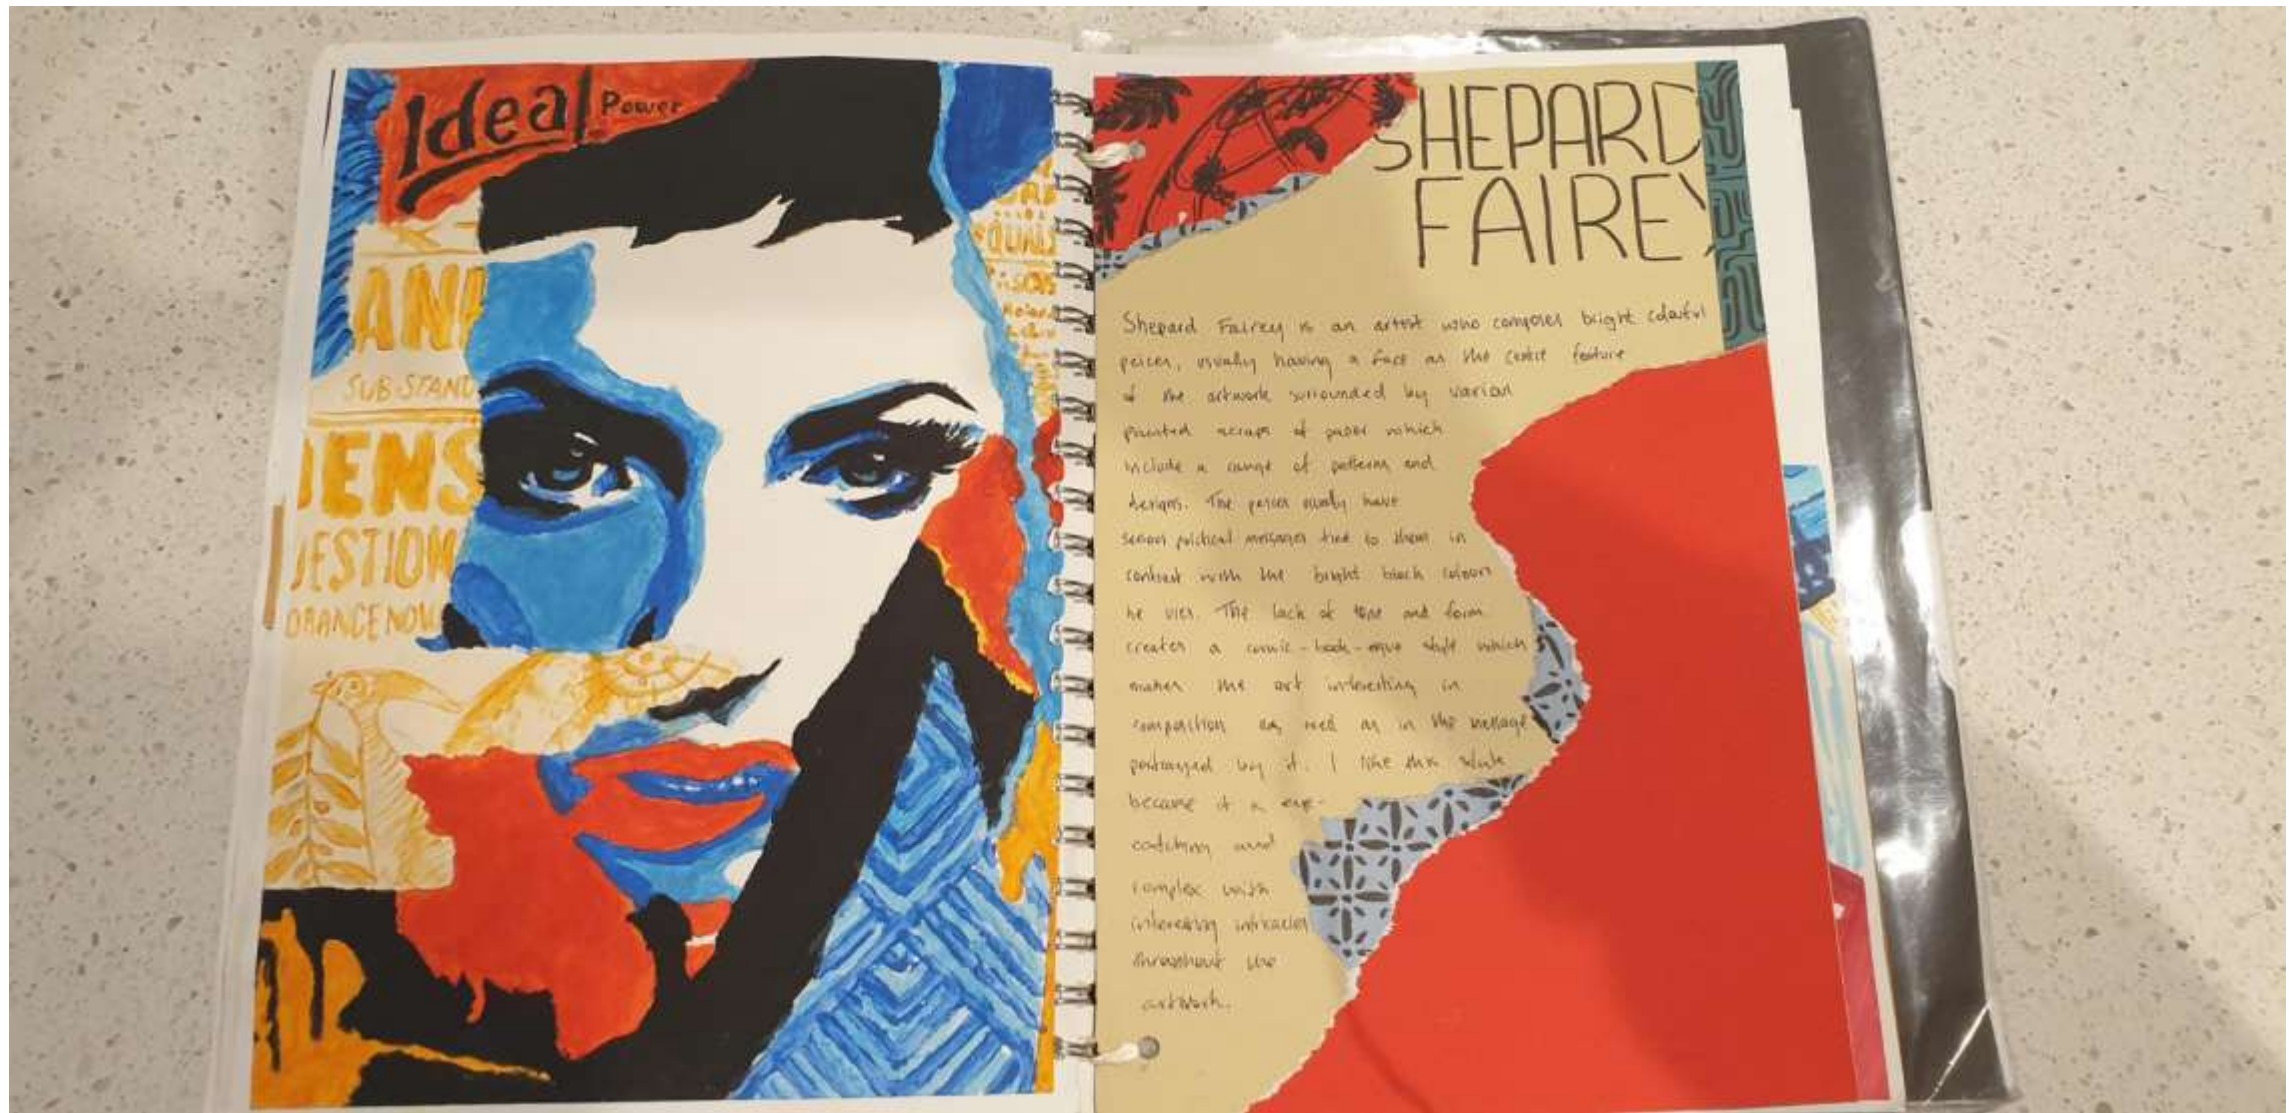 Ideal Power
ANI
SUB STAND
DENS
UESTION
ORANGE NOW
SHEPARD
FAIREY
Shepard Fairey is an artist who composes bright colourful
peices, usually having a face as the centre feature
of the artwork surrounded by various
painted scraps of paper which
include a range of patterns and
designs. The peices usually have
serious political messages tied to them in
contrast with the bright block colours
he uses. The lack of tone and form
creates a comic-book-esque style which
makes the art interesting in
composition as well as in the message
portrayed by it. I like this style
because it is eye-
catching and
complex with
interesting intricacies
throughout the
artwork.